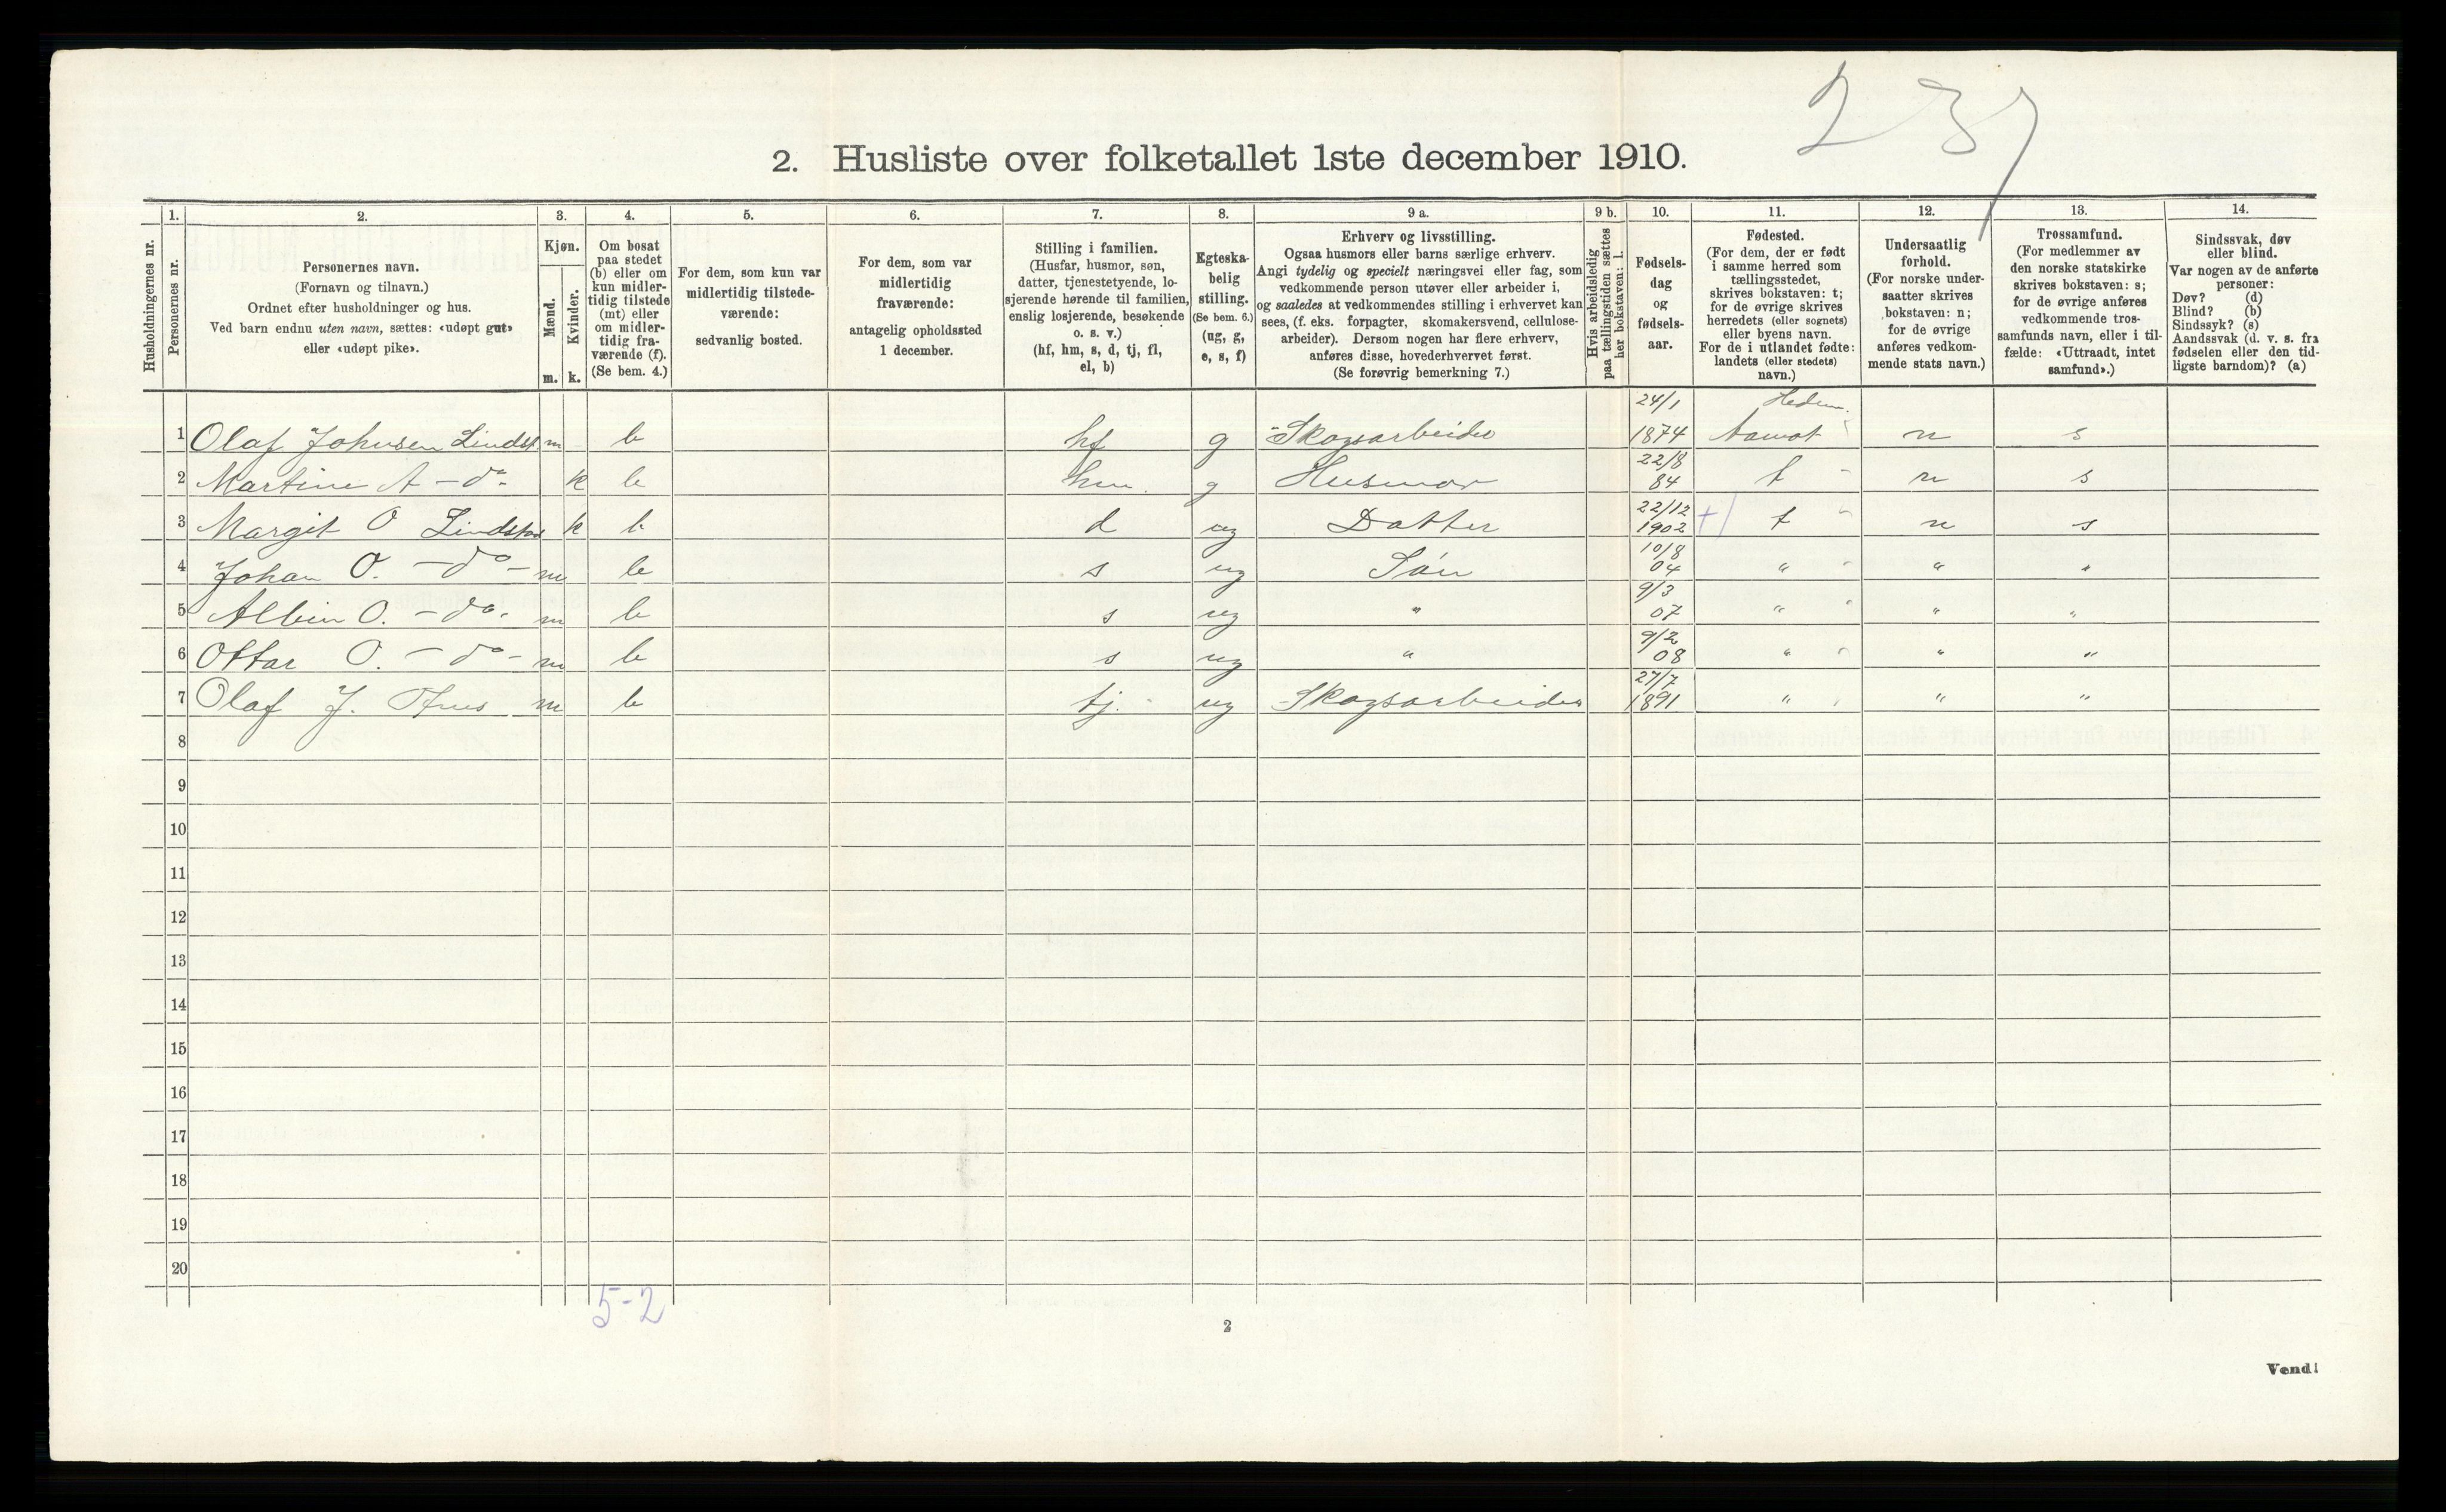 237
2. Husliste over folketallet 1ste december 1910.
1. 2. 3. 4. 5. 6. 7. 8. 9 a. 9 b. 10. 11. 12. 13. 14.
Husholdningernes nr.
Personernes nr.
Personernes navn.
(Fornavn og tilnavn.)
Ordnet efter husholdninger og hus.
Ved barn endnu uten navn, sættes: «udøpt gut»
eller «udøpt pike».
Kjøn.
Mænd.
Kvinder.
m. k.
Om bosat
paa stedet
(b) eller om
kun midler-
tidig tilstede
(mt) eller
om midler-
tidig fra-
værende (f).
(Se bem. 4.)
For dem, som kun var
midlertidig tilstede-
værende:
sedvanlig bosted.
For dem, som var
midlertidig
fraværende:
antagelig opholdssted
1 december.
Stilling i familien.
(Husfar, husmor, søn,
datter, tjenestetyende, lo-
sjerende hørende til familien,
enslig losjerende, besøkende
o. s. v.)
(hf, hm, s, d, tj, fl,
el, b)
Egteska-
belig
stilling.
(Se bem. 6.)
(ug, g,
e, s, f)
Erhverv og livsstilling.
Ogsaa husmors eller barns særlige erhverv.
Angi tydelig og specielt næringsvei eller fag, som
vedkommende person utøver eller arbeider i,
og saaledes at vedkommendes stilling i erhvervet kan
sees, (f. eks. forpagter, skomakersvend, cellulose-
arbeider). Dersom nogen har flere erhverv,
anføres disse, hovederhvervet først.
(Se forøvrig bemerkning 7.)
Hvis arbeidsledig
paa tællingstiden sættes
her bokstaven: l.
Fødsels-
dag
og
fødsels-
aar.
Fødested.
(For dem, der er født
i samme herred som
tællingsstedet,
skrives bokstaven: t;
for de øvrige skrives
herredets (eller sognets)
eller byens navn.
For de i utlandet fødte:
landets (eller stedets)
navn.)
Undersaatlig
forhold.
(For norske under-
saatter skrives
bokstaven: n;
for de øvrige
anføres vedkom-
mende stats navn.)
Trossamfund.
(For medlemmer av
den norske statskirke
skrives bokstaven: s;
for de øvrige anføres
vedkommende tros-
samfunds navn, eller i til-
fælde: «Uttraadt, intet
samfund».)
Sindssvak, døv
eller blind.
Var nogen av de anførte
personer:
Døv? (d)
Blind? (b)
Sindssyk? (s)
Aandssvak (d. v. s. fra
fødselen eller den tid-
ligste barndom)? (a)
24/1 Hedm.
1 Olaf Johnsen Lindst m b hf g Skogsarbeider 1874 Aamot n s
22/8
2 Martine A - do - k b hm. g Husmor 84 t n s
22/12
3 Margit O Lindstad k b d ug Datter 1902 t n s
10/8
4 Johan O. - do - m b s ug Søn 04 " " "
9/3
5 Albin O. - do. m b s ug " 07 " " "
9/2
6 Ottar O. - do - m b s ug " 08 " " "
27/7
7 Olaf J. m b tj. ug Skogsarbeider 1891 " " "
8
9
10
11
12
13
14
15
16
17
18
19
20
5-2
2
Vend!